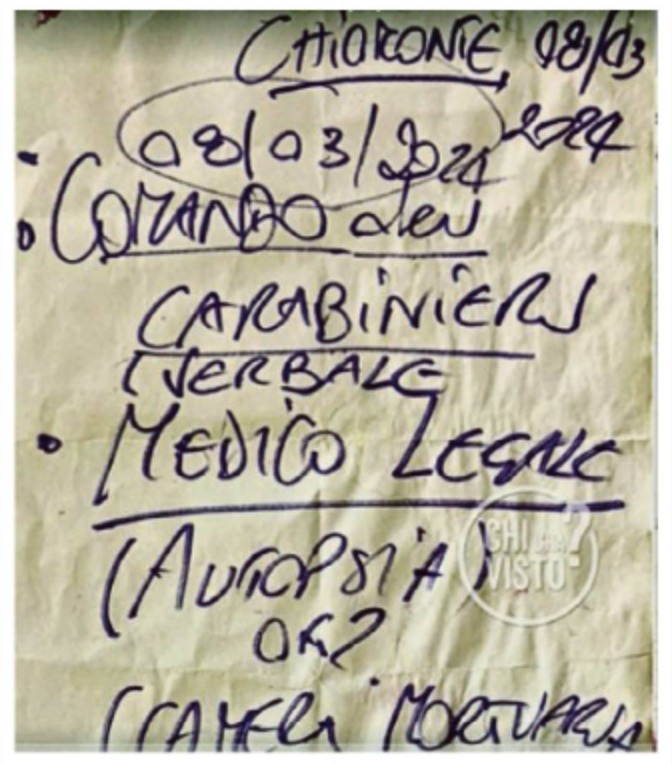 CHIORONTE, 08/03
2024
08/03/2024
• COMANDO dei
CARABINIERI
(VERBALE
• MEDICO LEGALE
(AUTOPSIA)
OK?
(CAMERA MORTUARIA
CHI L'HA VISTO?